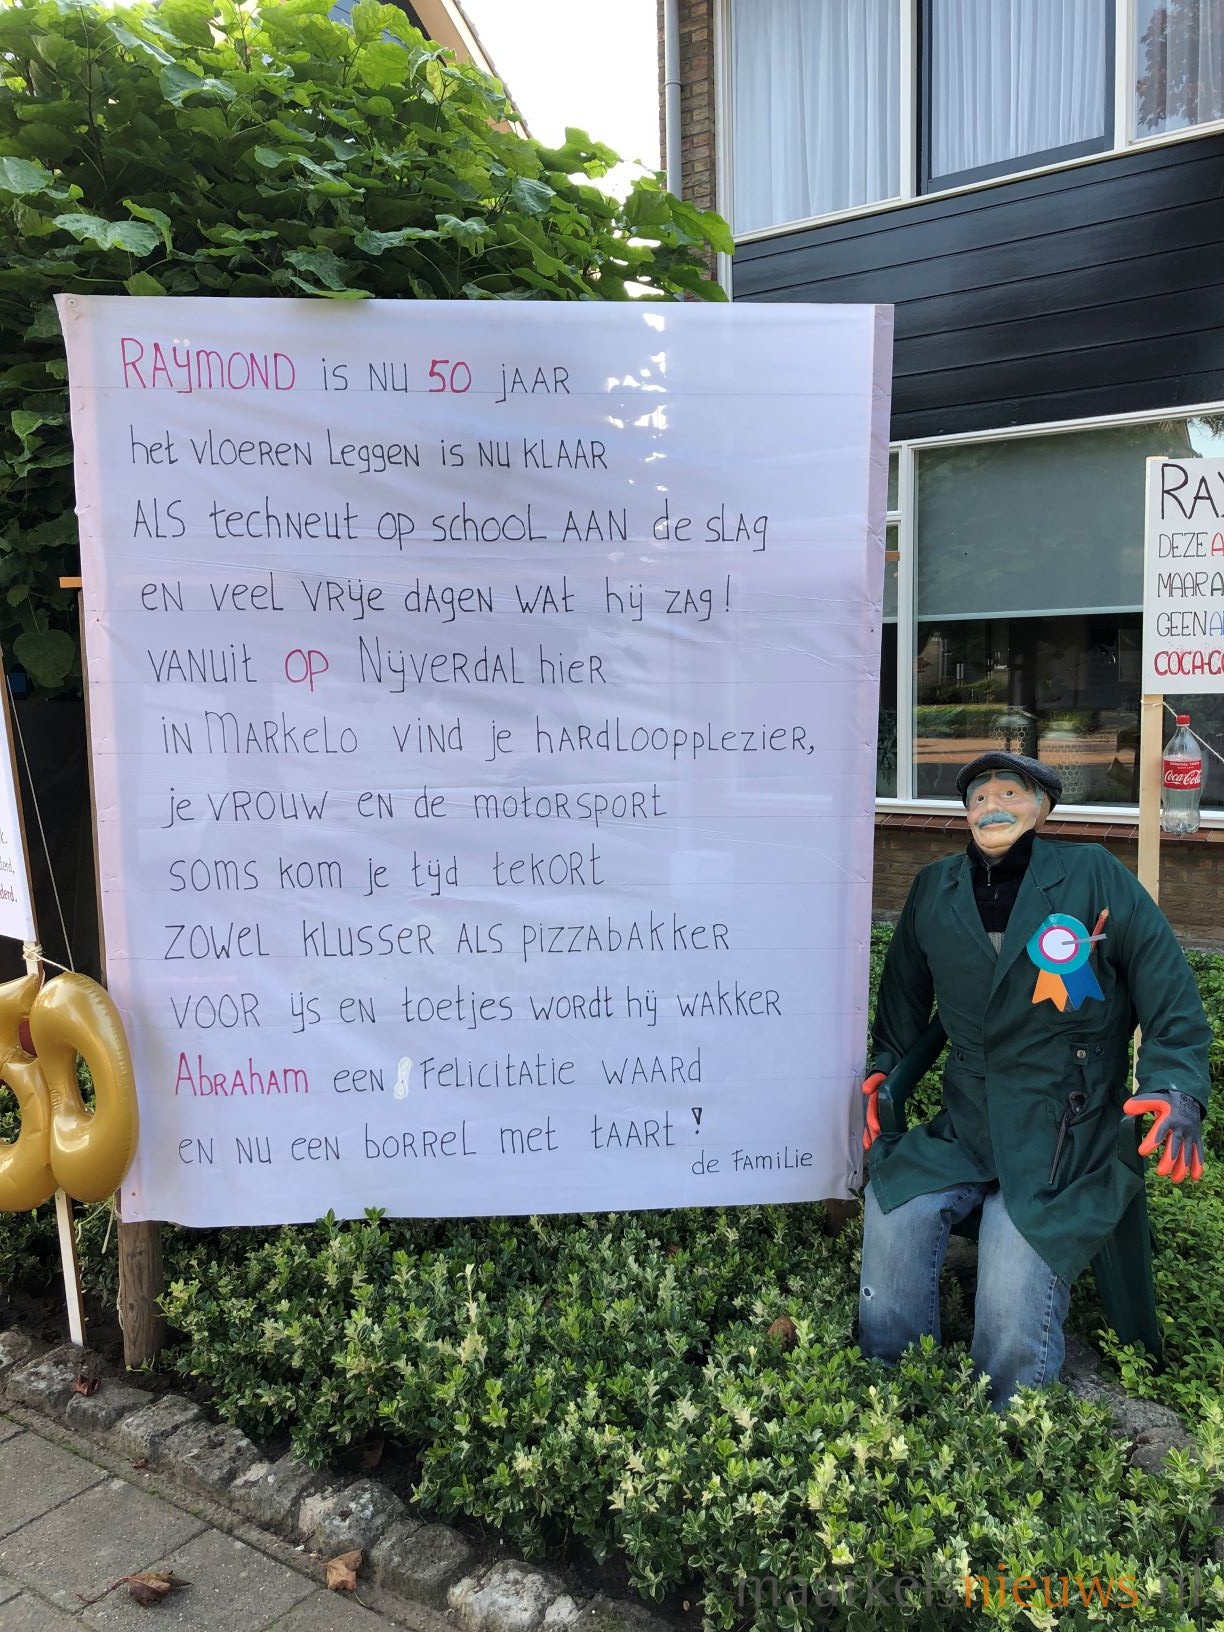 RAYMOND is NU 50 jAAR
het VLOEREN Leggen is NU KLAAR
ALS techneut op school AAN de slag
en veel vrije dagen wat hij zag!
VANUit OP Nijverdal hier
in Markelo vind je hardloopplezier,
je VROUW EN de motorsport
soms kom je tijd tekort
zowel klusser als pizzabakker
voor ijs en toetjes wordt hij wakker
Abraham een felicitatie waard
en nu een borrel met taart!
de familie
RAY
DEZE A
MAAR A
GEEN A
COCA-CO
Coca-Cola
maarkelsnieuws.nl